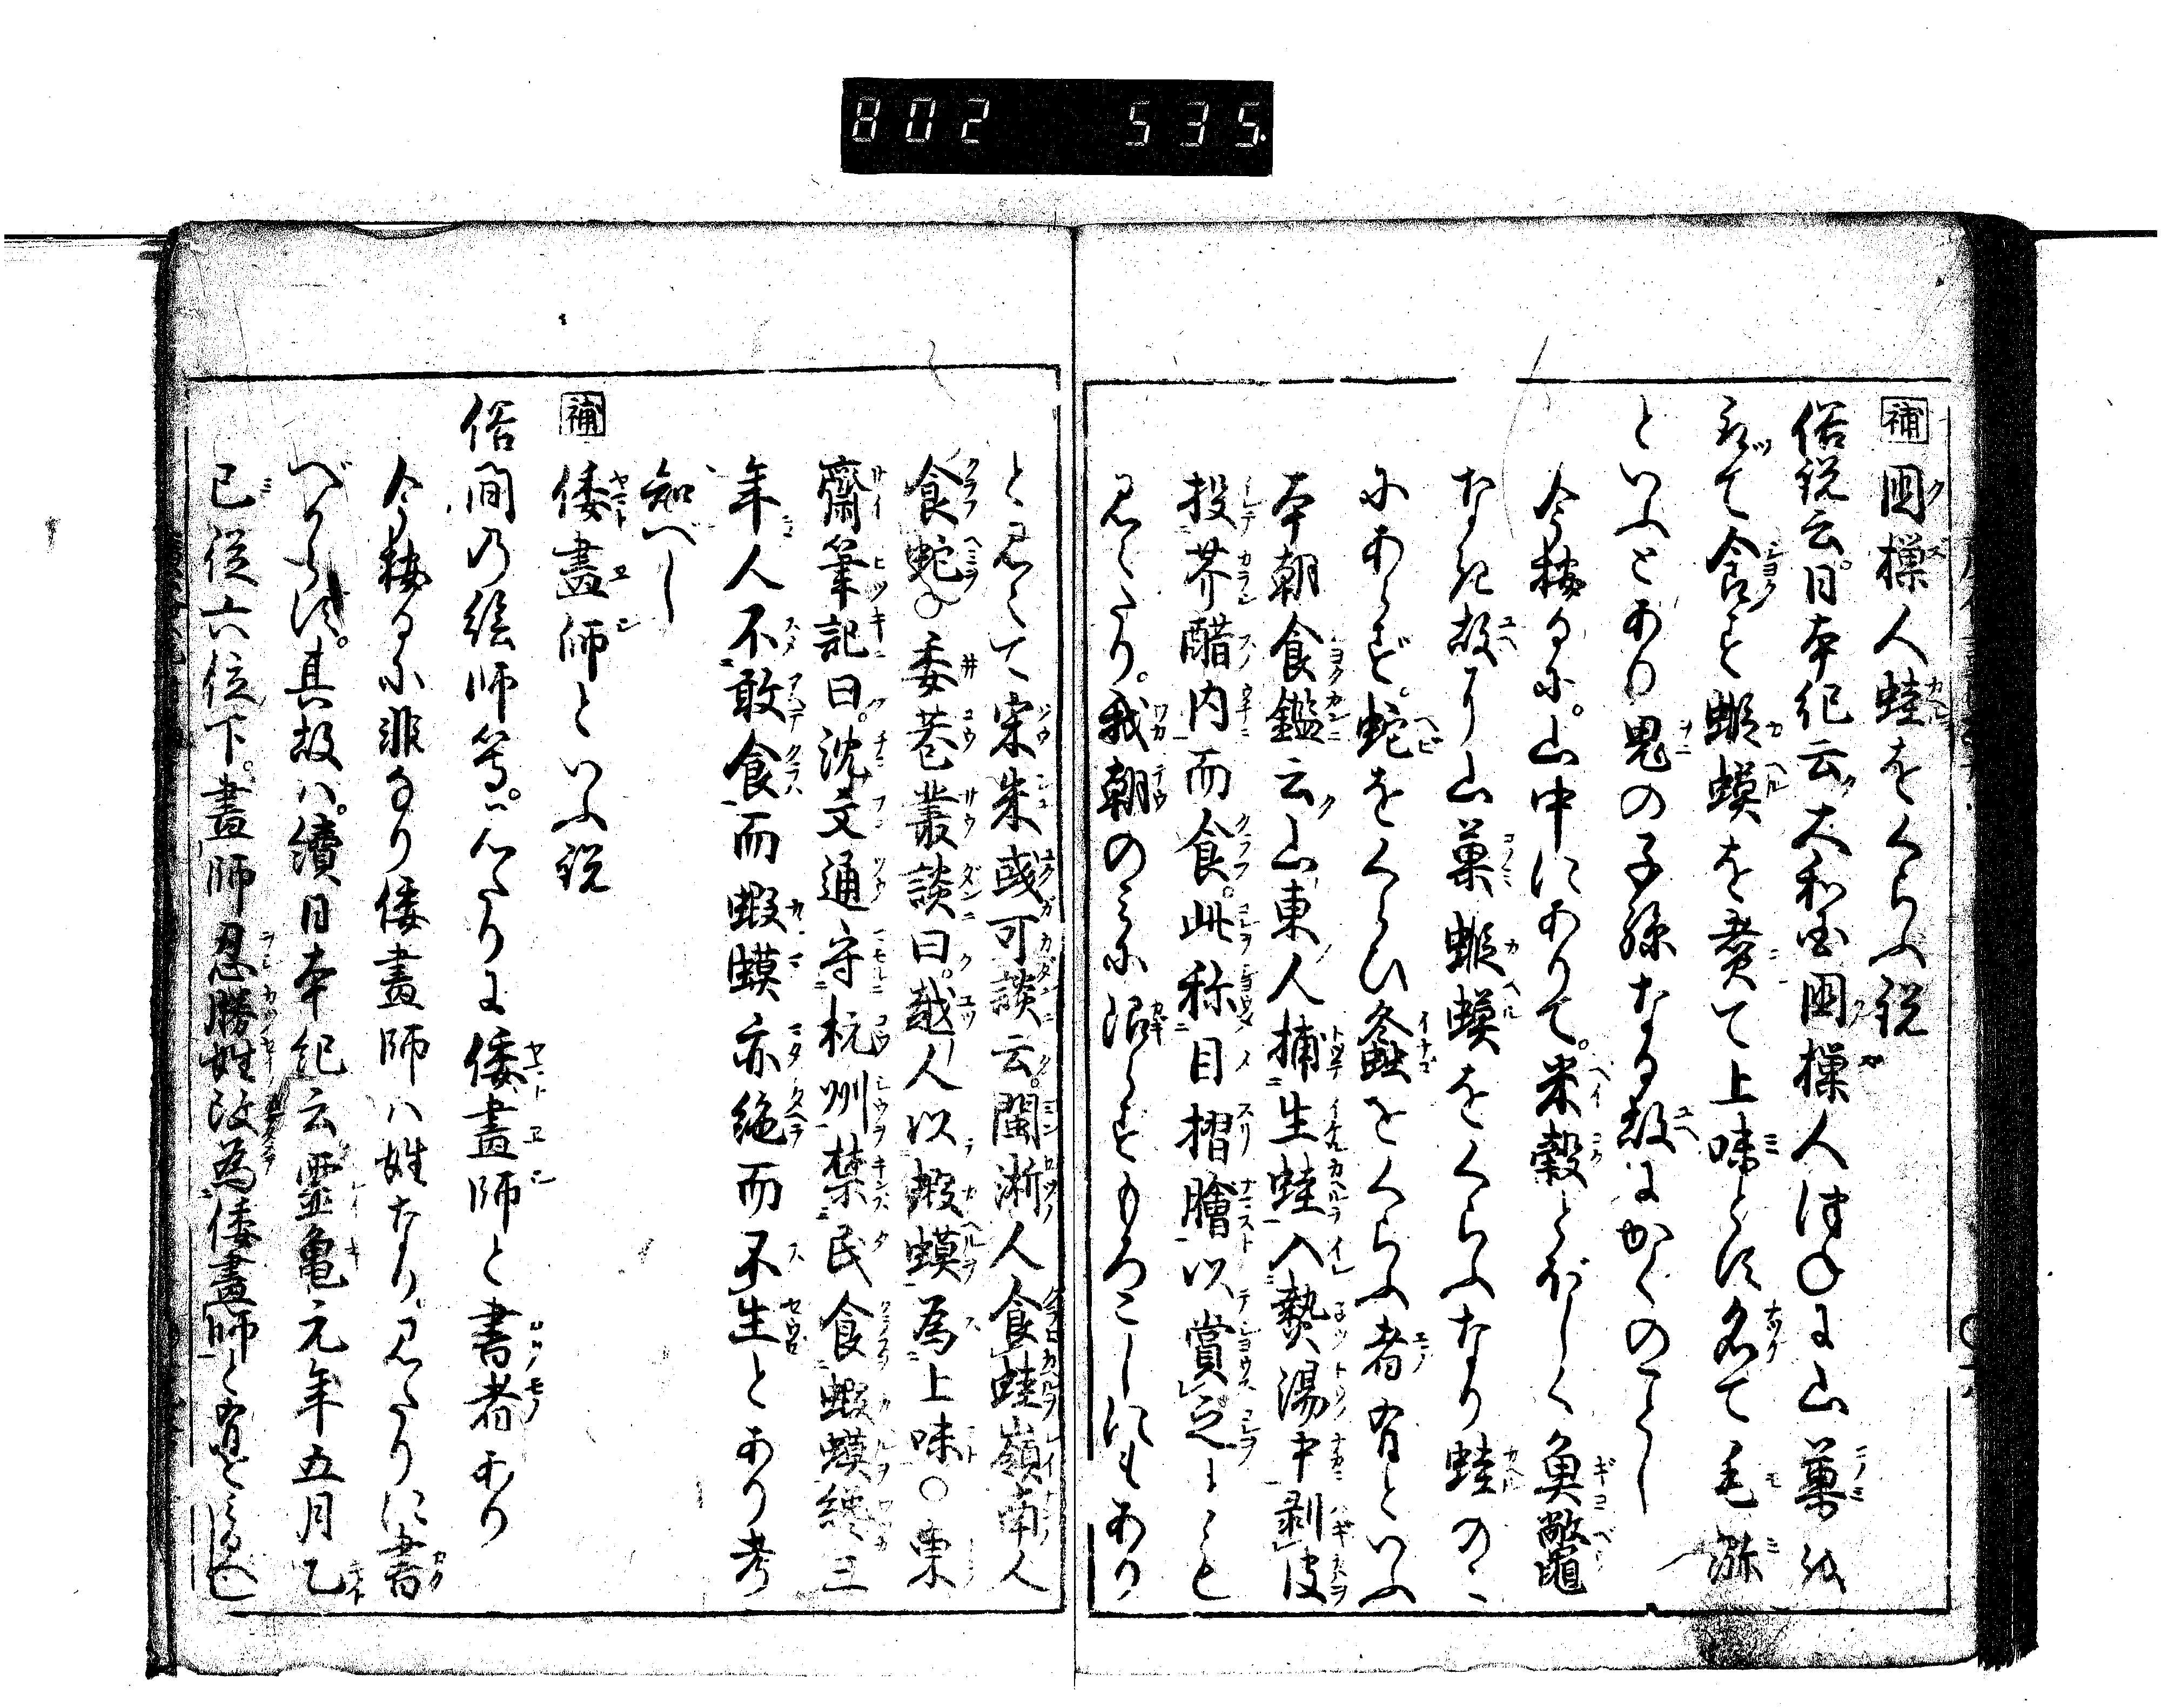 802 535.
補 国樔人蛙をくらふ説
俗説云。日本紀云大和国国樔人つねに山菓を
取て食とす蝦蟆を煮て上味とす名て毛瀰
といふとあり鬼の子孫なる故にかくのごとし
今按るに。山中にありて。米穀とぼしく魚鼈
なき故に山菓蝦蟆をくらふなり蛙のミ
にあらず。蛇をくらひ螽をくらふ者有といふ
本朝食鑑云山東人捕生蛙入熱湯中剥皮
投芥醋内而食。此称目摺膾以賞之ことと
見えたり。我朝のミに限らずもろこしにもあり
と見えて宋朱彧可談云。閩浙人食蛙嶺南人
食蛇〇委巷叢談曰。越人以蝦蟆為上味〇東
齋筆記曰。沈文通守杭州禁民食蝦蟆終三
年人不敢食而蝦蟆亦絶而不生とあり考
知べし
補 倭畫師といふ説
俗間の絵師等。心えたりに倭畫師と書者あり
今按るに非なり倭畫師ハ姓なり。みだりに書
べからず。其故ハ。續日本紀云霊亀元年五月乙
巳従六位下。畫師忍勝姓改為倭畫師と有をミるべし